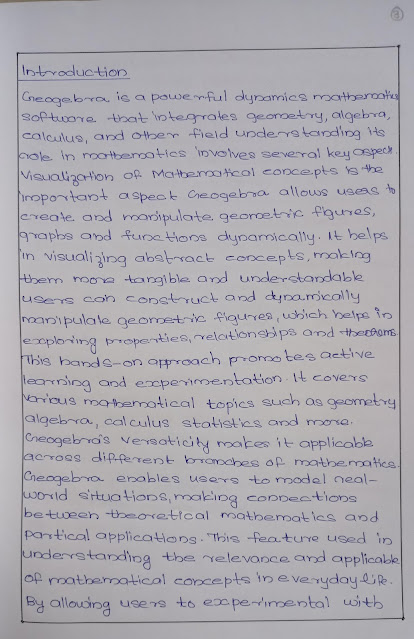 3
Introduction
Geogebra is a powerful dynamics mathematics
software that integrates geometry, algebra,
calculus, and other field understanding its
role in mathematics involves several key aspect.
Visualization of Mathematical concepts is the
important aspect Geogebra allows users to
create and manipulate geometric figures,
graphs and functions dynamically. It helps
in visualizing abstract concepts, making
them more tangible and understandable
users can construct and dynamically
manipulate geometric figures, which helps in
exploring properties, relationships and theorems.
This hands-on approach promotes active
learning and experimentation. It covers
various mathematical topics such as geometry
algebra, calculus statistics and more.
Geogebra's versaticity makes it applicable
across different branches of mathematics.
Geogebra enables users to model real-
world situations, making connections
between theoretical mathematics and
partical applications. This feature used in
understanding the relevance and applicable
of mathematical concepts in everyday life.
By allowing users to experimental with